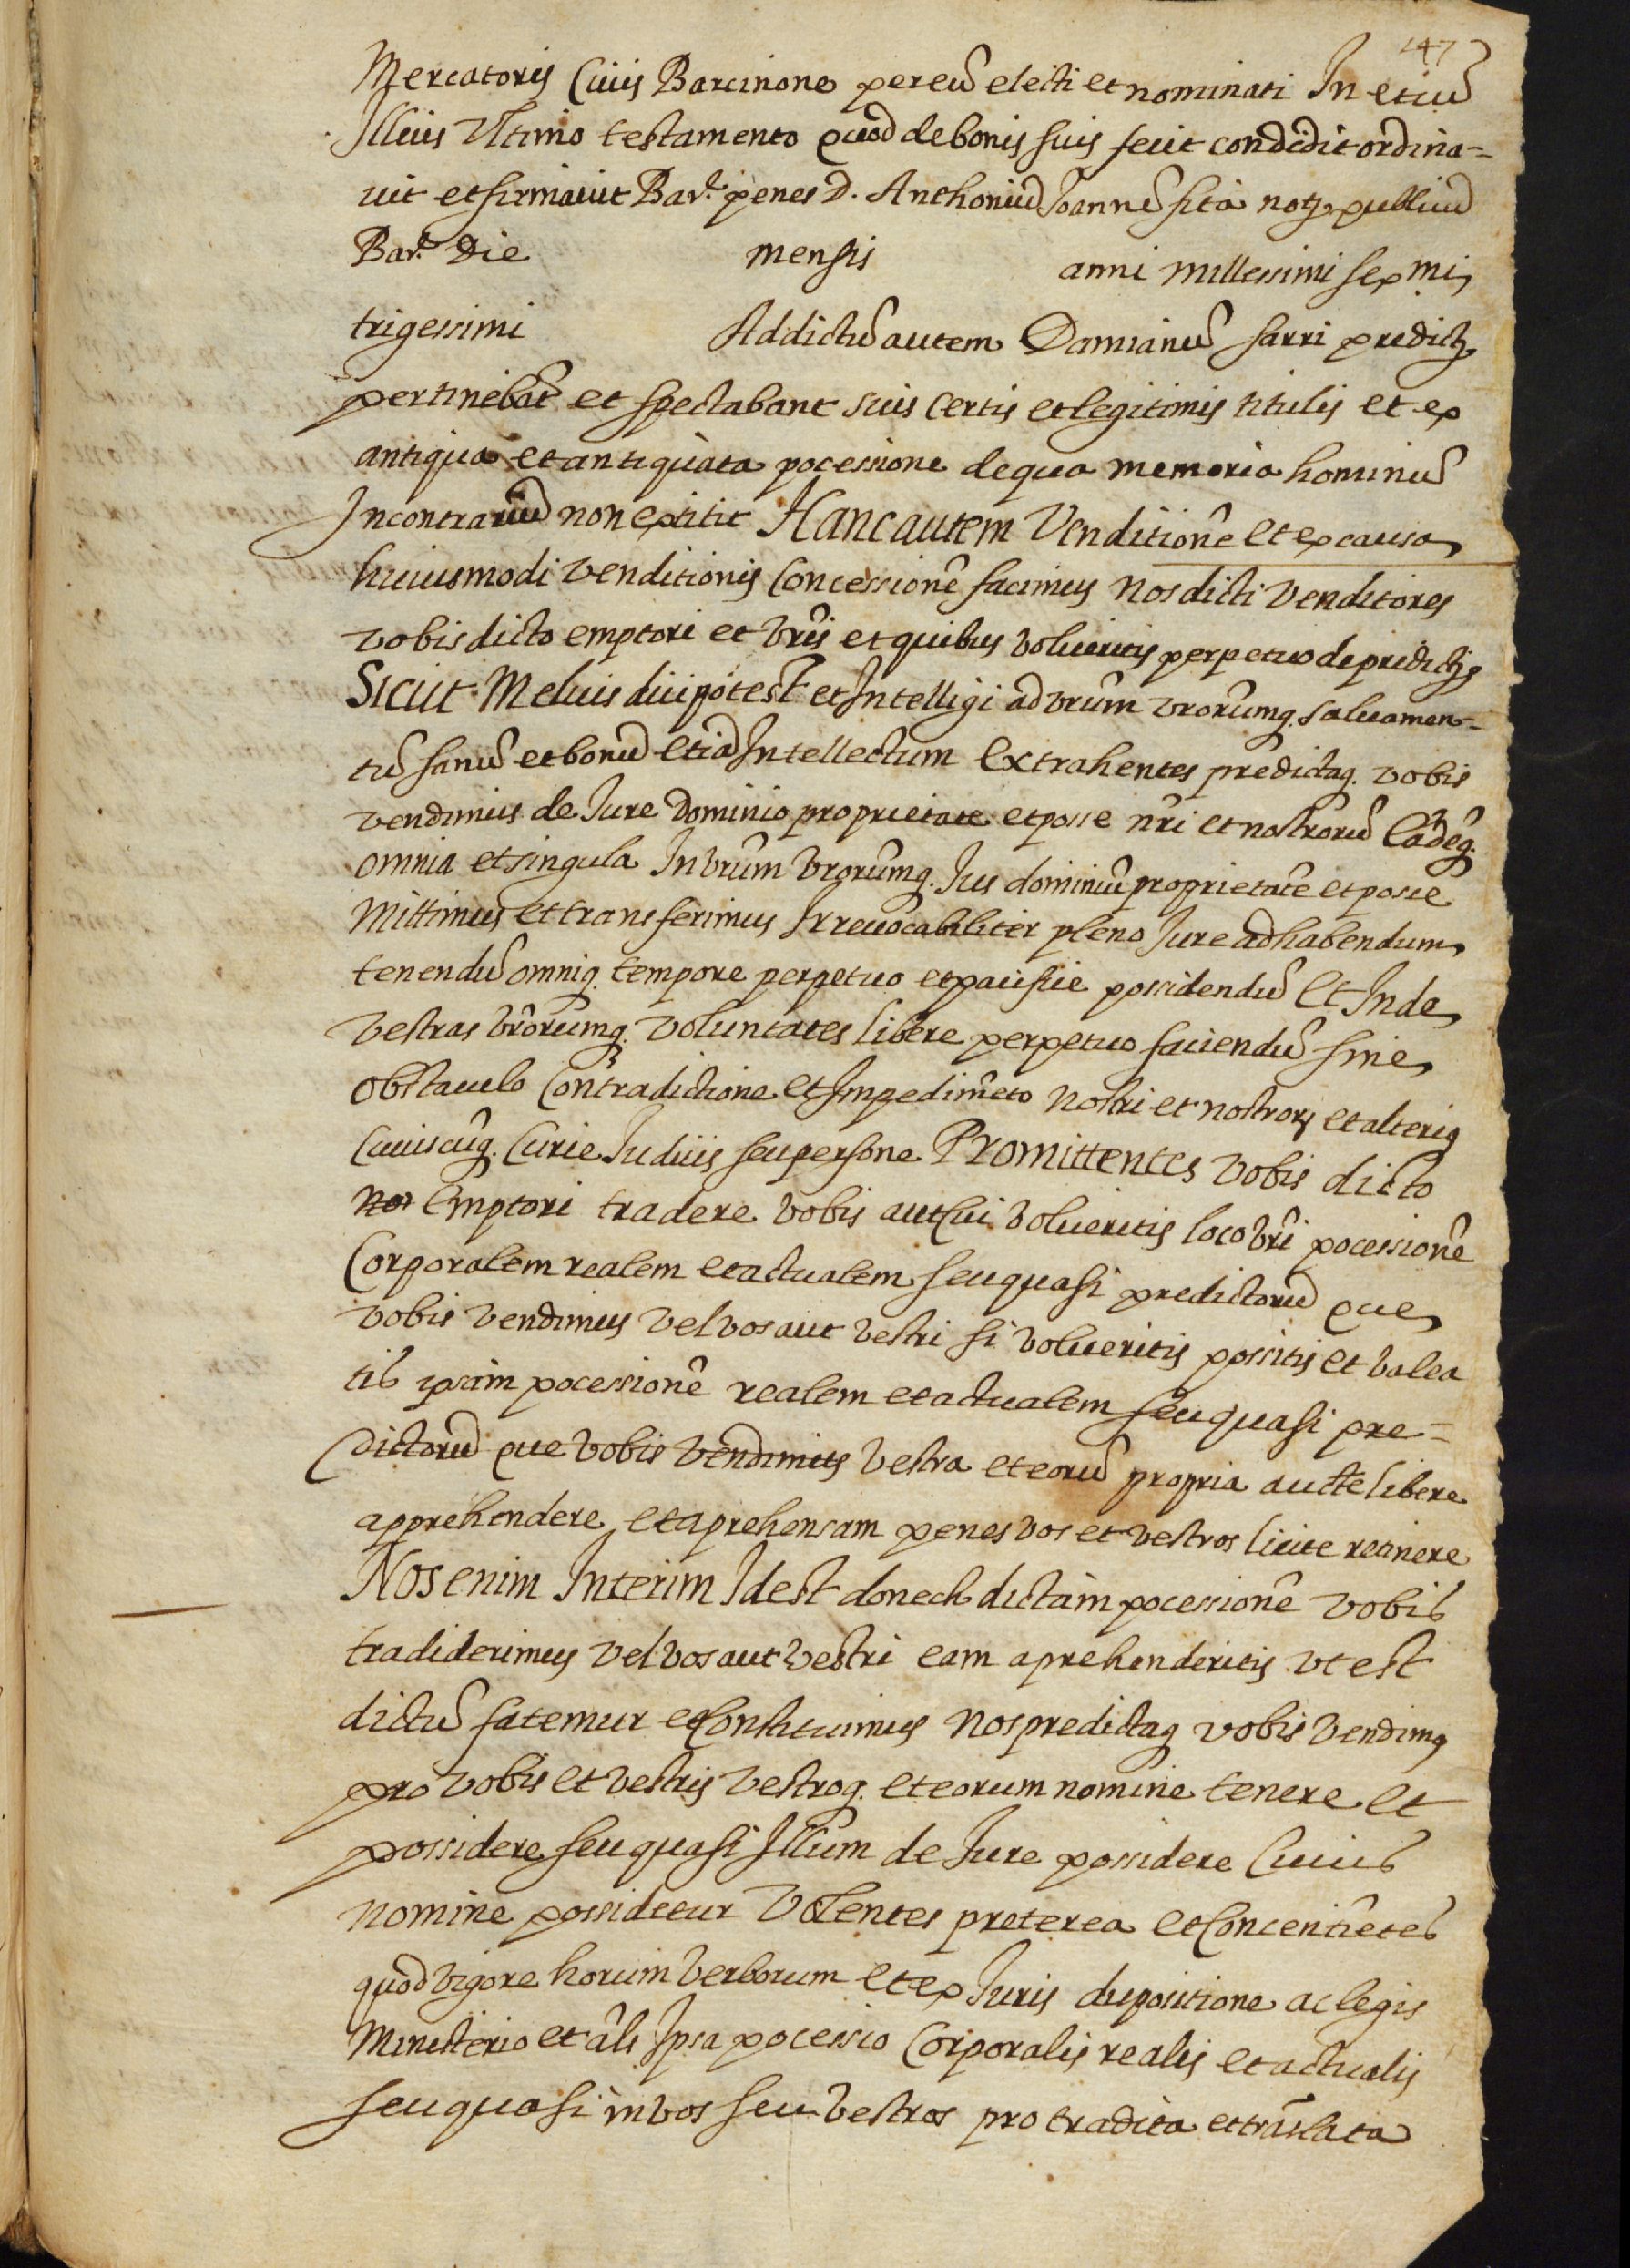 147
Mercatoris Civis Barcinone per eũ electi et nominati In et cũ
Illius Ultimo testamento quod de bonis suis fecit condidit ordina=
vit et firmavit Barẽ penes D. Anthoniũ Joannẽ fita notȝ publicũ
Barẽ Die mensis anni millessimi sexmi
trigessimi Ad dictũ autem Damianũ sarri predictȝ
pertinebãt et spectabant suis certis et legitimis titulis et ex
antiqua et antiquata pocessione de qua memoria hominũ
In contrariũ non extitit Hanc autem Venditionẽ et ex causa
huiusmodi venditionis Concessionẽ facimus Nos dicti Venditores
vobis dicto emptori et vr̃is et quibus volueritis perpetuo de predictis
Sicut Melius dici potest et Intelligi ad vr̃um vr̃orumq. salvamen=
tũ sanũ et bonũ etiã Intellectum Extrahentes predictaq. vobis
vendimus de Jure Dominio proprietate et posse nr̃i et nostrorũ Eadẽq.
omnia et singula In vr̃um vr̃orumq. Jus dominiũ proprietatẽ et posse
Mittimus et transferimus Irrevocabiliter pleno Jure ad habendum
tenendũ omniq. tempore perpetuo et pacifice possidendũ Et Inde
Vestras vr̃orumq. voluntates libere perpetuo faciendũ sine
obstaculo Contradictione et Impedimẽto nostri et nostrorȝ et alterius
Cuiuscuq. Curie Judicis seu persone Promittentes vobis dicto
no Emptori tradere vobis aut Cui Volueritis loco vr̃i pocessionẽ
Corporalem realem et actualem seu quasi predictorũ que
vobis vendimus Vel vos aut Vestri si Volueritis possitis et Valea
tis ipsam pocessionẽ realem et actualem seu quasi pre=
dictorũ que vobis vendimus Vestra et eorũ propria aucte libere
apprehendere et aprehensam penes vos et vestros licite retinere
Nos enim Interim Idest donech dictam pocessionẽ vobis
tradiderimus Vel vos aut Vestri eam aprehenderitis ut est
dictũ fatemur et Constituimus Nos predictaq vobis Vendimus
pro vobis et Vestris Vestroq. et eorum nomine tenere et
possidere seu quasi Illum de Jure possidere Cuius
nomine possidetur Volentes preterea et Concentiẽtes
quod vigore horum Verborum et ex Juris dispositione ac legis
Ministerio et al̃s Ipsa pocessio Corporalis realis et actualis
seu quasi in vos seu Vestros pro tradita et trãslata